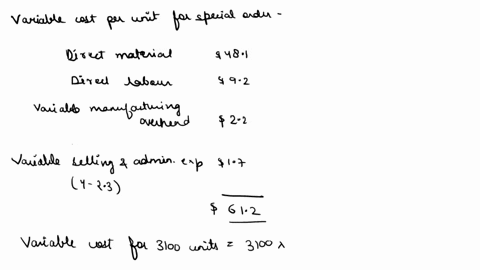 Variable cost per unit for special order -
Direct material $48.1
Direct labour $9.2
Variable manufacturing overhead $2.2
Variable selling & admin. exp $1.7
(4-2.3)
$ 61.2
Variable cost for 3100 units = 3100 x